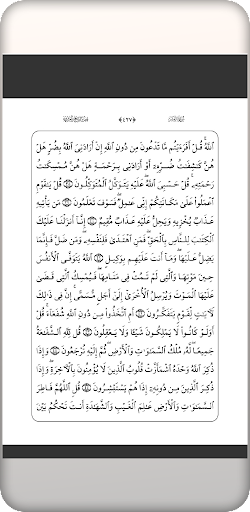 ﴿٤٦٧﴾
ٱللَّهُ قُلْ أَفَرَءَيْتُم مَّا تَدْعُونَ مِن دُونِ ٱللَّهِ إِنْ أَرَادَنِيَ ٱللَّهُ بِضُرٍّ هَلْ
هُنَّ كَٰشِفَٰتُ ضُرِّهِۦٓ أَوْ أَرَادَنِي بِرَحْمَةٍ هَلْ هُنَّ مُمْسِكَٰتُ
رَحْمَتِهِۦ قُلْ حَسْبِيَ ٱللَّهُ عَلَيْهِ يَتَوَكَّلُ ٱلْمُتَوَكِّلُونَ قُلْ يَٰقَوْمِ
ٱعْمَلُوا۟ عَلَىٰ مَكَانَتِكُمْ إِنِّي عَٰمِلٌ فَسَوْفَ تَعْلَمُونَ مَن يَأْتِيهِ
عَذَابٌ يُخْزِيهِ وَيَحِلُّ عَلَيْهِ عَذَابٌ مُّقِيمٌ إِنَّآ أَنزَلْنَا عَلَيْكَ
ٱلْكِتَٰبَ لِلنَّاسِ بِٱلْحَقِّ فَمَنِ ٱهْتَدَىٰ فَلِنَفْسِهِۦ وَمَن ضَلَّ فَإِنَّمَا
يَضِلُّ عَلَيْهَا وَمَآ أَنتَ عَلَيْهِم بِوَكِيلٍ ٱللَّهُ يَتَوَفَّى ٱلْأَنفُسَ
حِينَ مَوْتِهَا وَٱلَّتِي لَمْ تَمُتْ فِي مَنَامِهَا فَيُمْسِكُ ٱلَّتِي قَضَىٰ
عَلَيْهَا ٱلْمَوْتَ وَيُرْسِلُ ٱلْأُخْرَىٰٓ إِلَىٰٓ أَجَلٍ مُّسَمًّى إِنَّ فِي ذَٰلِكَ
لَءَايَٰتٍ لِّقَوْمٍ يَتَفَكَّرُونَ أَمِ ٱتَّخَذُوا۟ مِن دُونِ ٱللَّهِ شُفَعَآءَ قُلْ
أَوَلَوْ كَانُوا۟ لَا يَمْلِكُونَ شَيْـًٔا وَلَا يَعْقِلُونَ قُل لِّلَّهِ ٱلشَّفَٰعَةُ
جَمِيعًا لَّهُۥ مُلْكُ ٱلسَّمَٰوَٰتِ وَٱلْأَرْضِ ثُمَّ إِلَيْهِ تُرْجَعُونَ وَإِذَا
ذُكِرَ ٱللَّهُ وَحْدَهُ ٱشْمَأَزَّتْ قُلُوبُ ٱلَّذِينَ لَا يُؤْمِنُونَ بِٱلْءَاخِرَةِ وَإِذَا
ذُكِرَ ٱلَّذِينَ مِن دُونِهِۦٓ إِذَا هُمْ يَسْتَبْشِرُونَ قُلِ ٱللَّهُمَّ فَاطِرَ
ٱلسَّمَٰوَٰتِ وَٱلْأَرْضِ عَٰلِمَ ٱلْغَيْبِ وَٱلشَّهَٰدَةِ أَنتَ تَحْكُمُ بَيْنَ